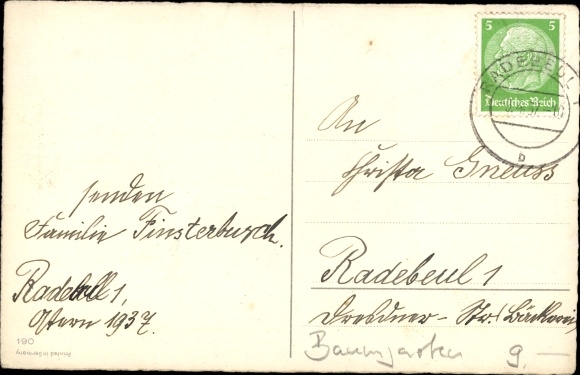 senden
Familie Finsterbusch.
Radebeul 1,
Ostern 1937.
190
Printed in Germany
5 5
Deutsches Reich
RADEBEUL
b
An
Christa Gneuss
Radebeul 1
Dresdner - Str.
Baumgarten 9.-